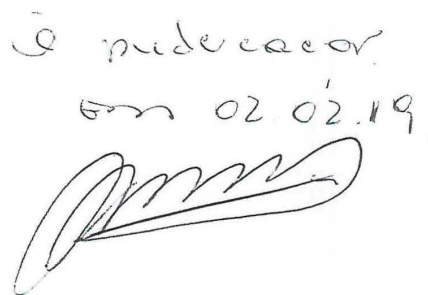 à publicação
Em 02.02.19